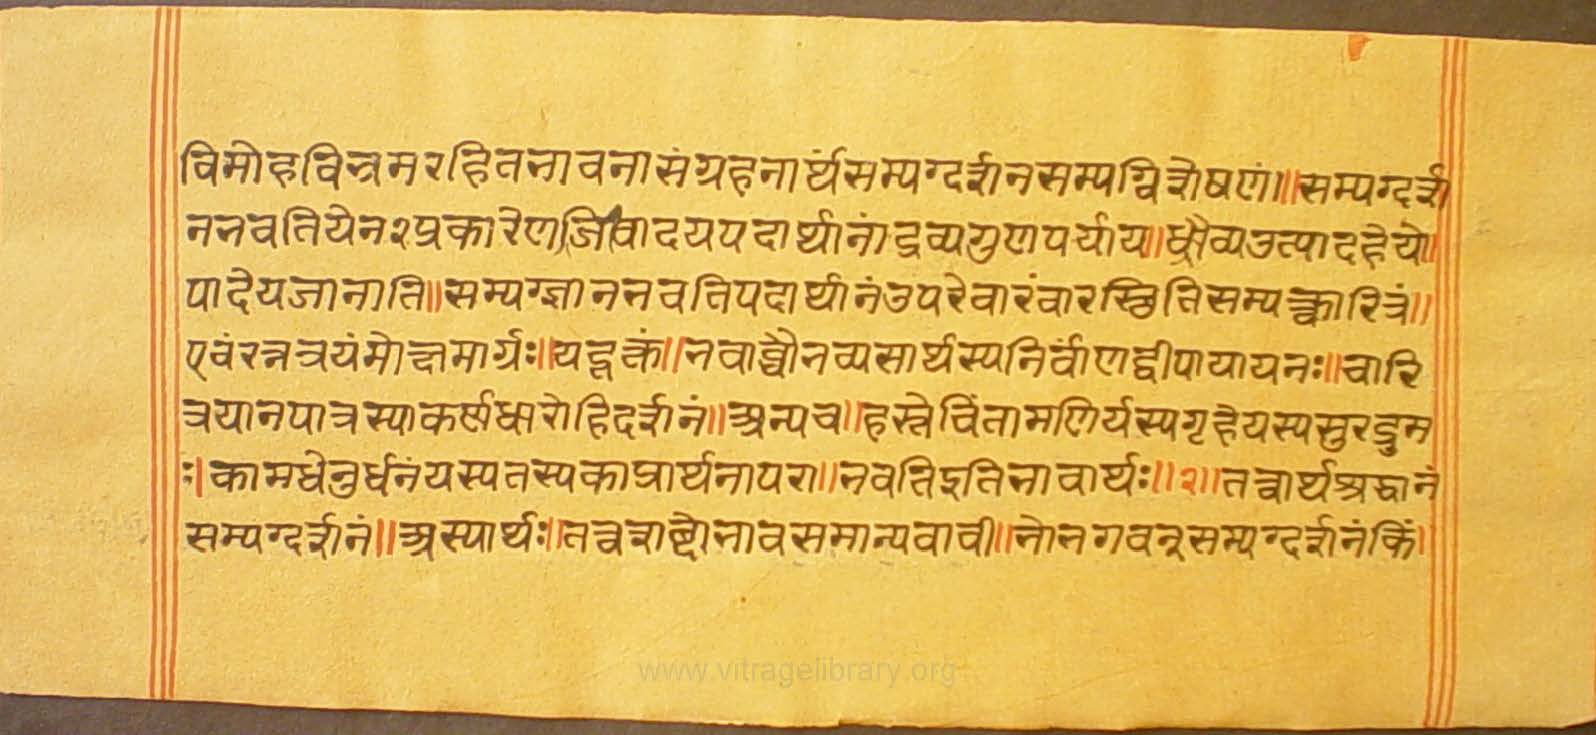 विमोहविभ्रमरहितभावनासंग्रहनार्थंसम्यग्दर्शनसम्यग्विशेषणं॥॥सम्यग्दर्श
नभवतियेन२प्रकारेणजिवादयपदार्थानांद्रव्यगुणपर्याय॥ध्रौव्यउत्पादहेयो॥
पादेयजानाति॥सम्यग्ज्ञानभवतिपदार्थानंउपरेवारंवारस्छितिसम्यक्चारित्रं॥
एवंरत्नत्रयंमोक्षमार्ग्रः॥यदुक्तं॥भवाब्धौभव्यसार्थस्यनिर्वाणद्वीपायायनः॥चारि
त्रयानपात्रस्याकर्णधारोहिदर्शनं॥अन्यच॥हस्तेचिंतामणिर्यस्यगृहैयस्यसुरद्रुम
ः।कामधेनुर्धनंयस्यतस्यकाप्रार्थनापरा॥भवतिइतिभावार्थः॥२॥तत्वार्थश्रद्धानं
सम्यग्दर्शनं॥अस्यार्थः॥तत्वशब्दोभावसमान्यवाची॥भोभगवन्सम्यग्दर्शनंकिं।
www.vitragelibrary.org